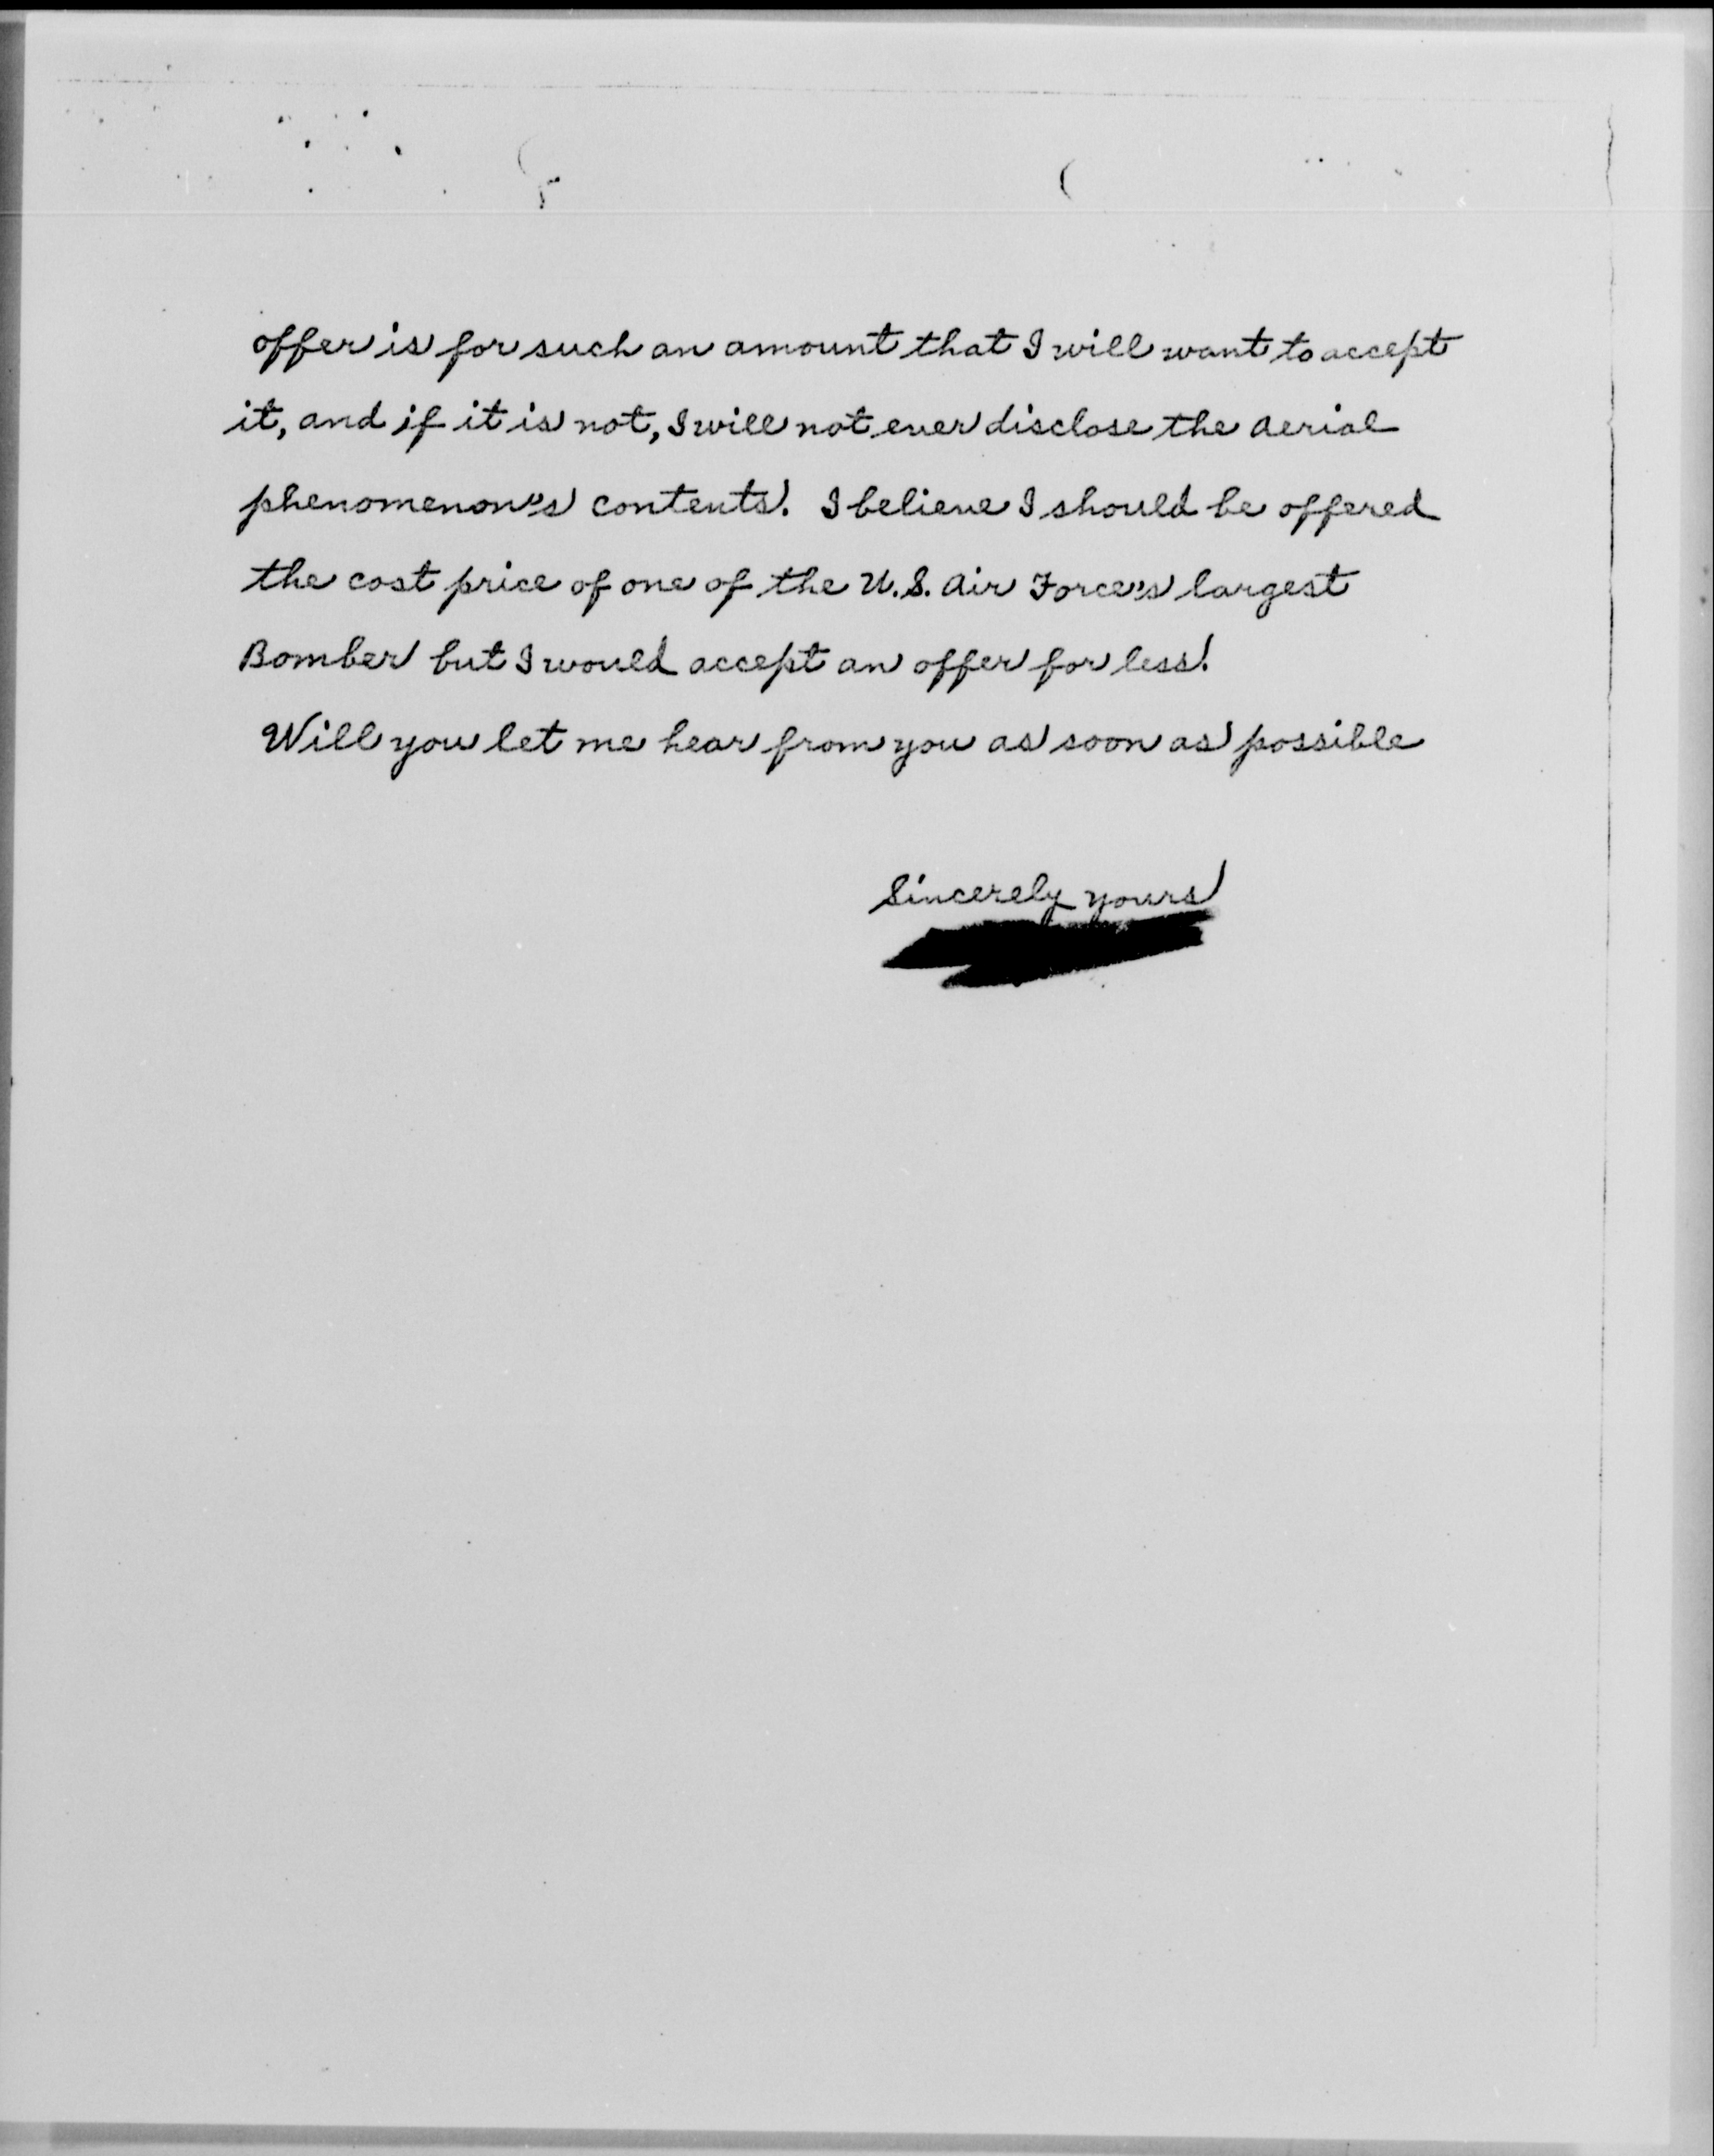 offer is for such an amount that I will want to accept
it, and if it is not, I will not ever disclose the aerial
phenomenon's contents. I believe I should be offered
the cost price of one of the U.S. Air Force's largest
Bomber but I would accept an offer for less.
Will you let me hear from you as soon as possible
Sincerely yours